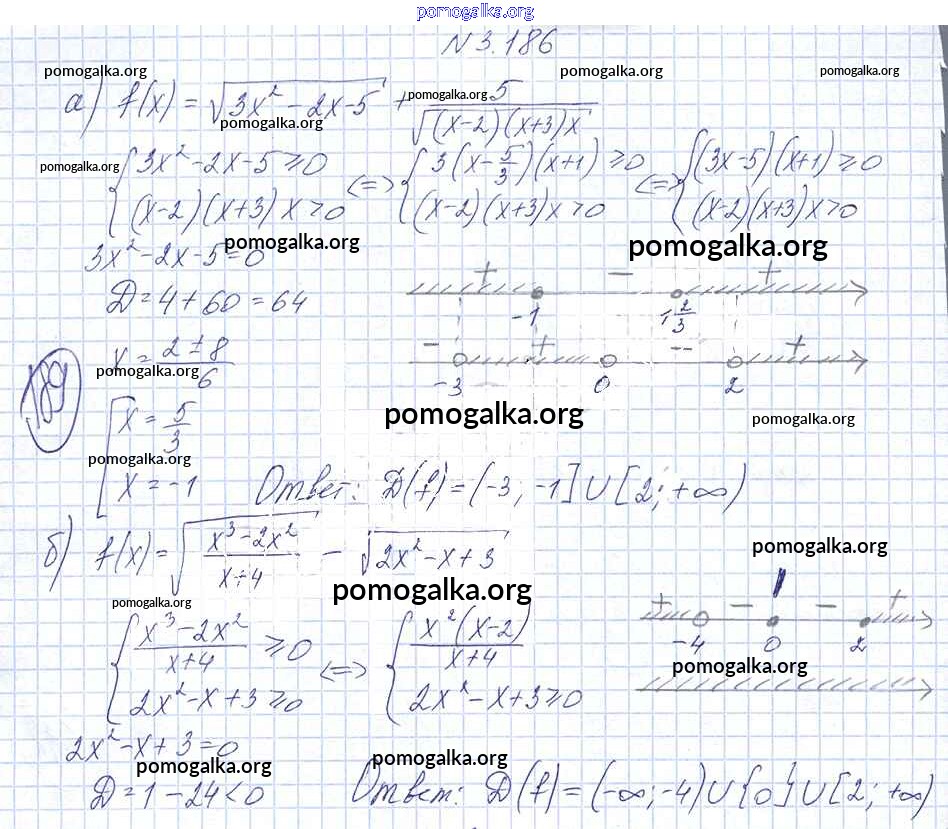 pomogalka.org
N 3.186
pomogalka.org pomogalka.org pomogalka.org
а) f(x) = √(3x² - 2x - 5) + 5/√((x-2)(x+3)x)
pomogalka.org pomogalka.org
pomogalka.org
{3x² - 2x - 5 ≥ 0 <=> {3(x - 5/3)(x+1) ≥ 0 <=> {(3x-5)(x+1) ≥ 0
{(x-2)(x+3)x > 0 {(x-2)(x+3)x > 0 {(x-2)(x+3)x > 0
pomogalka.org pomogalka.org
3x² - 2x - 5 = 0
+ - +
Д = 4 + 60 = 64
-1 1 2/3
x = (2 ± 8)/6
- + - +
pomogalka.org
-3 0 2
189
[x = 5/3
pomogalka.org pomogalka.org
pomogalka.org
[x = -1 Ответ: Д(f) = (-3; -1] ∪ [2; +∞)
б) f(x) = √((x³ - 2x²)/(x+4)) - √(2x² - x + 3)
pomogalka.org
pomogalka.org
pomogalka.org
+ - - +
-4 0 2
{(x³ - 2x²)/(x+4) ≥ 0 <=> {x²(x-2)/(x+4)
pomogalka.org
{2x² - x + 3 ≥ 0 {2x² - x + 3 ≥ 0
2x² - x + 3 = 0
pomogalka.org pomogalka.org
Д = 1 - 24 < 0 Ответ: Д(f) = (-∞; -4) ∪ {0} ∪ [2; +∞)